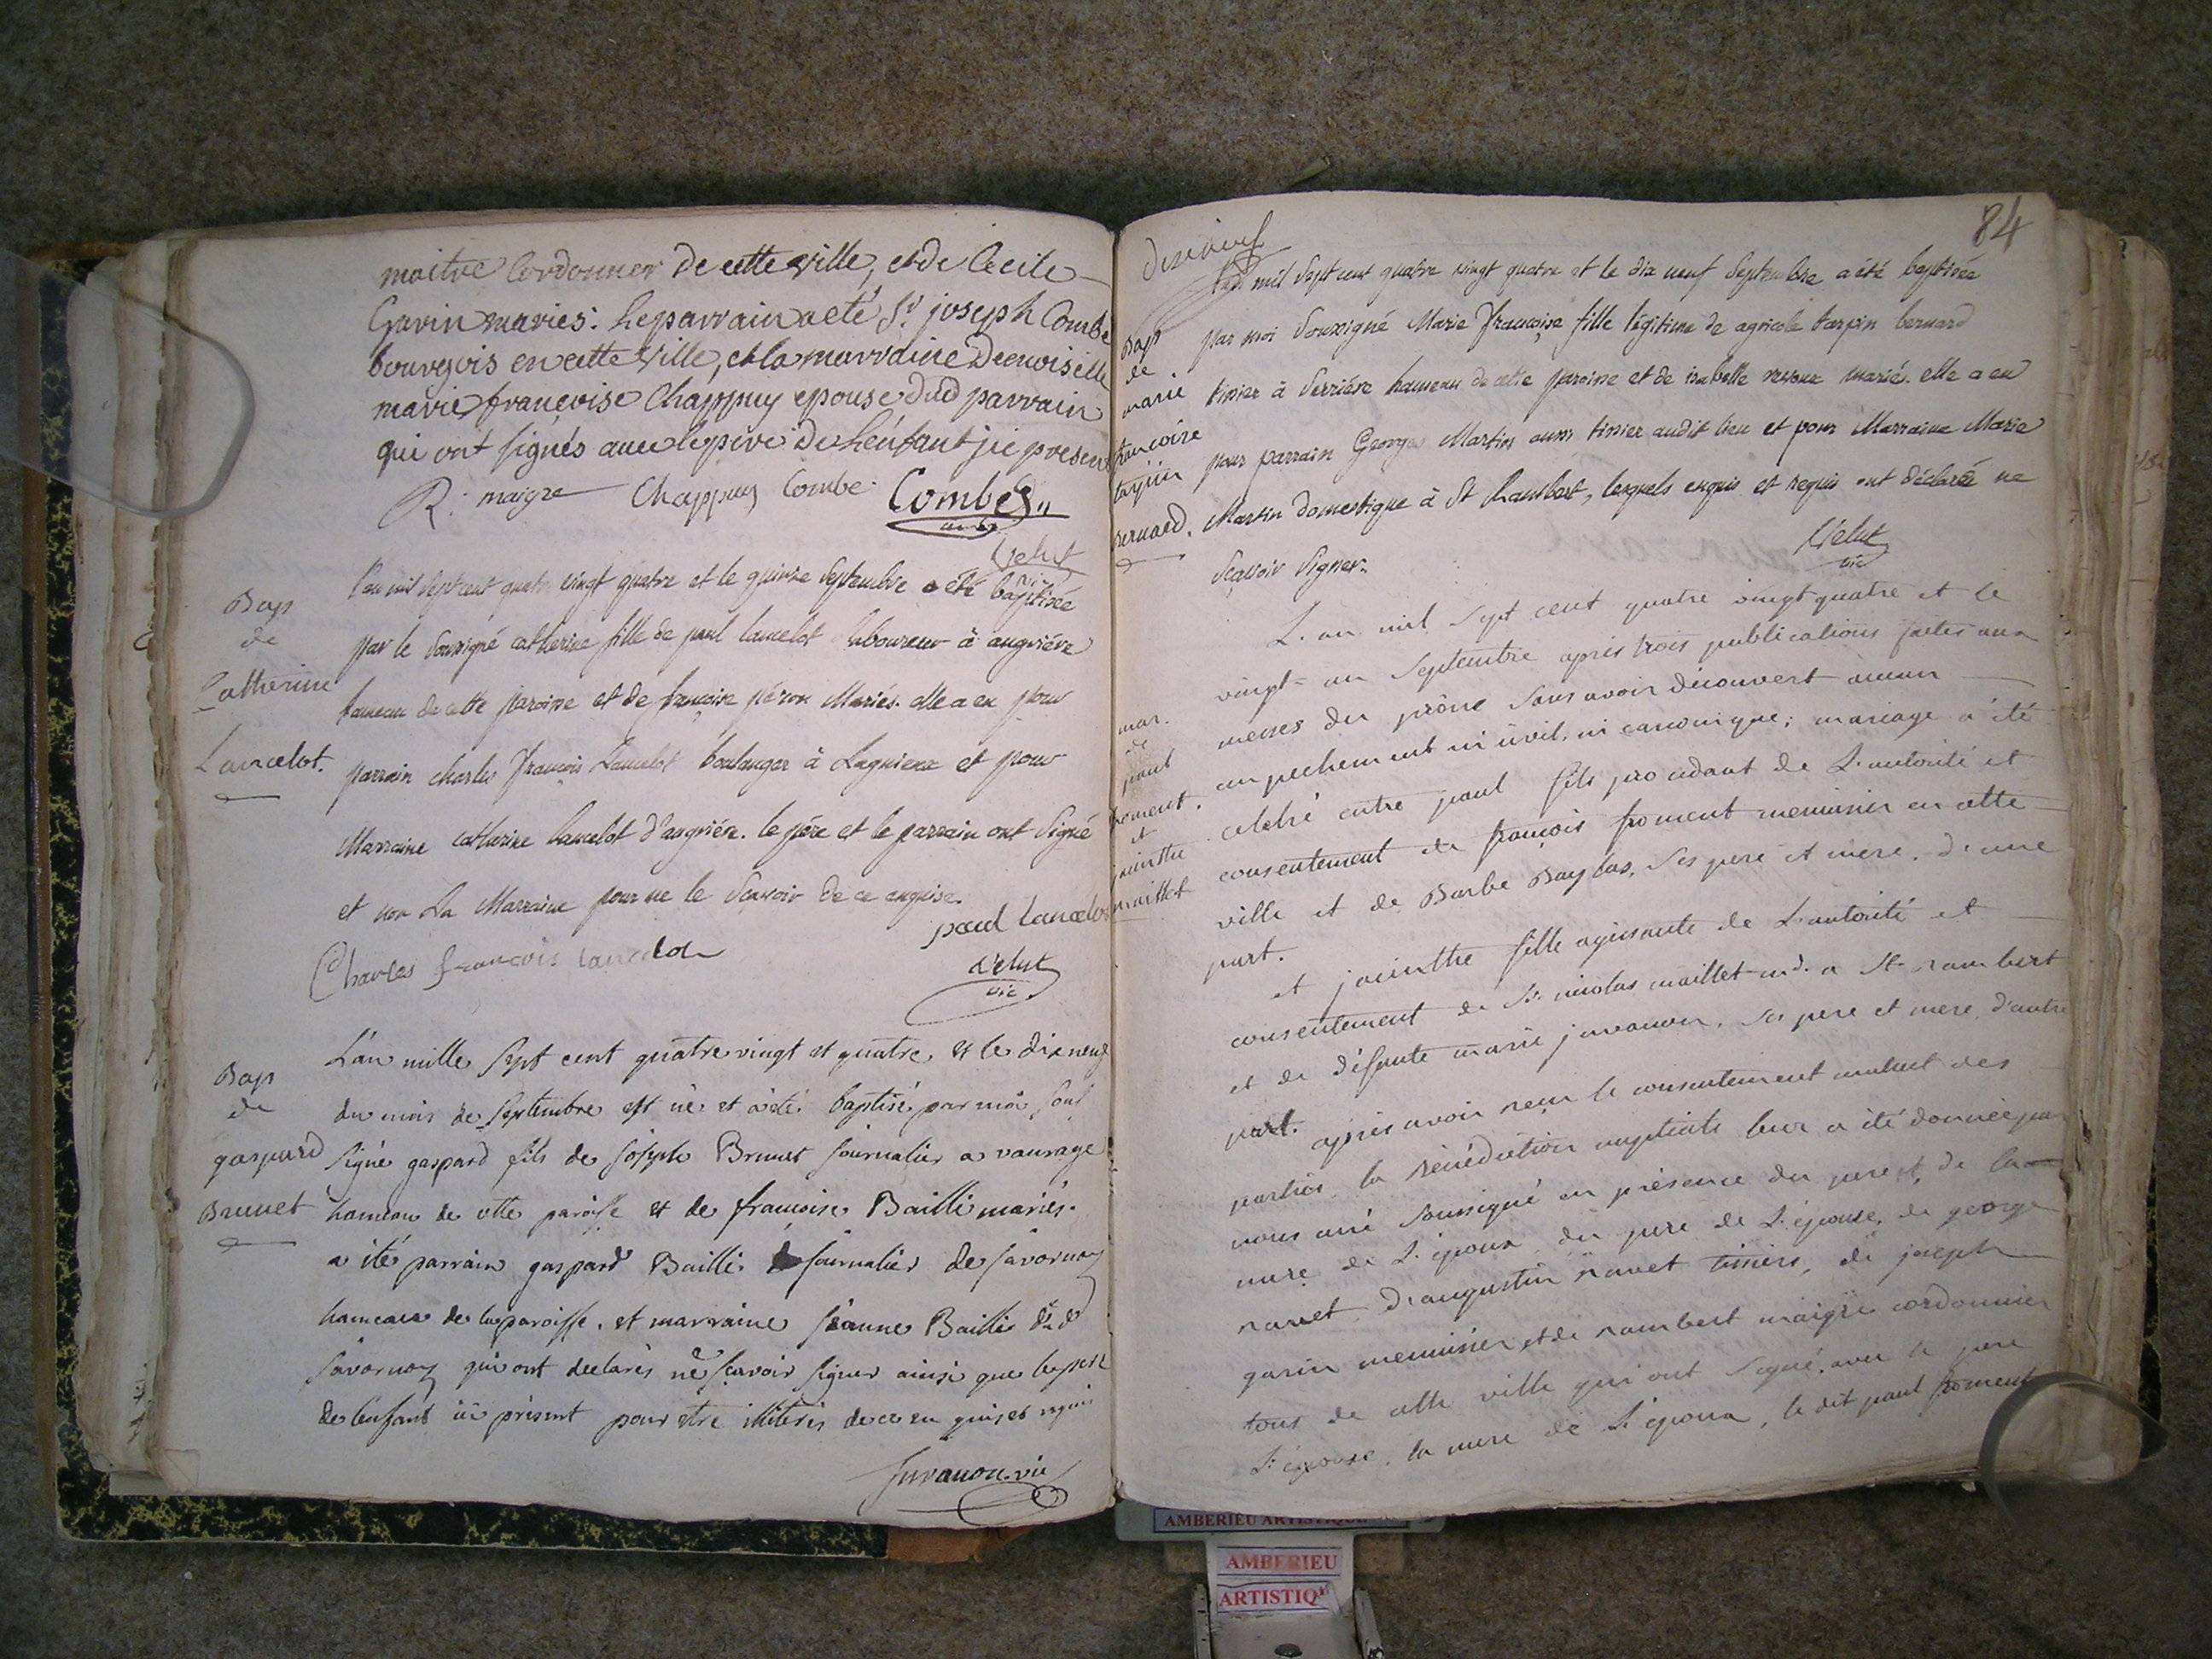 maitre Cordonner de cette ville, et de Cecile
Gravin maries: le parrain a eté Sr joseph Combe
bourgois en cette ville, et la marraine Demoiselle
marie françoise Chappuy epouse dud parrain
qui ont signés avec le pere de l'enfant ici present
R: maigre Chappuy Combe Combes
Velut
vic
Bap
de
Catherine
Lancelot.
l'an mil sept cent quatre vingt quatre et le quinze Septembre a été baptisée
par le soussigné catherine fille de paul lancelot laboureur à angriére
hameau de cette paroisse et de françoise péron Mariés. elle a eu pour
parrain charles françois Lancelot boulanger à Lagnieux et pour
Marraine catherine lancelot d'angriére. le pére et le parrain ont Signé
et non La Marraine pour ne le Sçavoir de ce enquise.
paul lancelot
Charles francois lancelot
Velut
vic.
Bap
de
gaspard
Brunet
L'an mille sept cent quatre vingt et quatre et le dix neuf
du mois de Septembre est né et a été baptisé par moi sous
signé gaspard fils de joseph Brunet journalier a vaurage
hameau de cette paroisse et de francoise Bailli mariés.
a été parrain gaspard Bailli journalier de javornoz
hameau de la paroisse. et marraine jeanne Bailli dud
javornoz qui ont declarés ne sçavoir signer ainsi que le pere
de lenfant ici présent pour etre illiterés de ce en quis et requis
Juvanon vic
84
dixneuf
Bap
de
marie
francoise
tarpin
bernard.
L'an mil sept cent quatre vingt quatre et le dix neuf Septembre a été baptisée
par moi Soussigné Marie françoise fille légitime de agricole tarpin bernard
tissier à Serriére hameau de cette paroisse et de isabelle mariés. elle a eu
pour parrain George Martin aussi tissier audit lieu et pour Marraine Marie
Martin domestique à St Rambert, lesquels enquis et requis ont déclaré ne
Sçavoir Signer.
Velut
vic
mar.
de
paul
froment.
et
jacinthe
maillet
L'an mil sept cent quatre vingt quatre et le
vingt-un Septembre aprés trois publications faites aux
messes du prône sans avoir découvert aucun
empechement ni civil, ni canonique; mariage a été
celebré entre paul fils procedant de L'autorité et
consentement de françois froment menuisier en cette
ville et de Barbe Baylas, ses pere et mere, d'une
part.
et jacinthe fille agissante de L'autorité et
consentement de Sr nicolas maillet md. a St rambert
et de défunte marie juvanon, ses pere et mere, d'autre
part. aprés avoir reçu le consentement mutuel des
parties la bénédiction nuptiale leur a été donnée par
nous curé soussigné en présence du pere et de la
mere de L'époux, du pere de L'épouse, de george
ravet, d'augustin ravet tissiers, de joseph
garin menuisier, et de rambert maigre cordonnier
tous de cette ville qui ont signé, avec le pere
L'épouse, la mere de L'époux, le dit paul froment
AMBERIEU ARTISTIQUE
AMBERIEU
ARTISTIQ